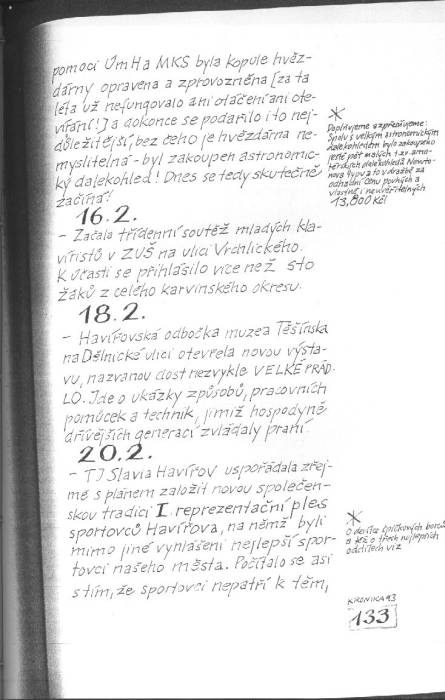 pomocí ÚmH a MKS byla kopule hvěz-
dárny opravena a zprovozněna [za ta
léta už nefungovalo ani otáčení ani ote-
vírání!] a dokonce se podařilo i to nej-
důležitější, bez čeho je hvězdárna ne-
myslitelná - byl zakoupen astronomic-
ký dalekohled! Dnes se tedy skutečně
začíná!
16.2.
- Začala třídenní soutěž mladých kla-
víristů v ZUŠ na ulici Vrchlického.
K účasti se přihlásilo více než sto
žáků z celého karvinského okresu.
18.2.
- Havířovská odbočka muzea Těšínska
na Dělnické ulici otevřela novou výsta-
vu, nazvanou dost nezvykle VELKÉ PRÁD-
LO. Jde o ukázky způsobů, pracovních
pomůcek a technik, jimiž hospodyně
dřívějších generací zvládaly praní.
20.2.
- TJ Slavia Havířov uspořádala zřej-
mě s plánem založit novou společen-
skou tradici I. reprezentační ples
sportovců Havířova, na němž byli
mimo jiné vyhlášeni nejlepší spor-
tovci našeho města. Počítalo se asi
s tím, že sportovci nepatří k těm,
*
Doplňujeme a zpřesňujeme:
Spolu s velkým astronomickým
dalekohledem bylo zakoupeno
ještě pět malých t.zv. ama-
térských dalekohledů Newto-
nova typu a to v dražbě za
odhadní cenu pouhých a
vlastně neuvěřitelných
13,800 Kč!
*
O desítce špičkových borců
a též o třech nejlepších
oddílech viz
KRONIKA 93
133